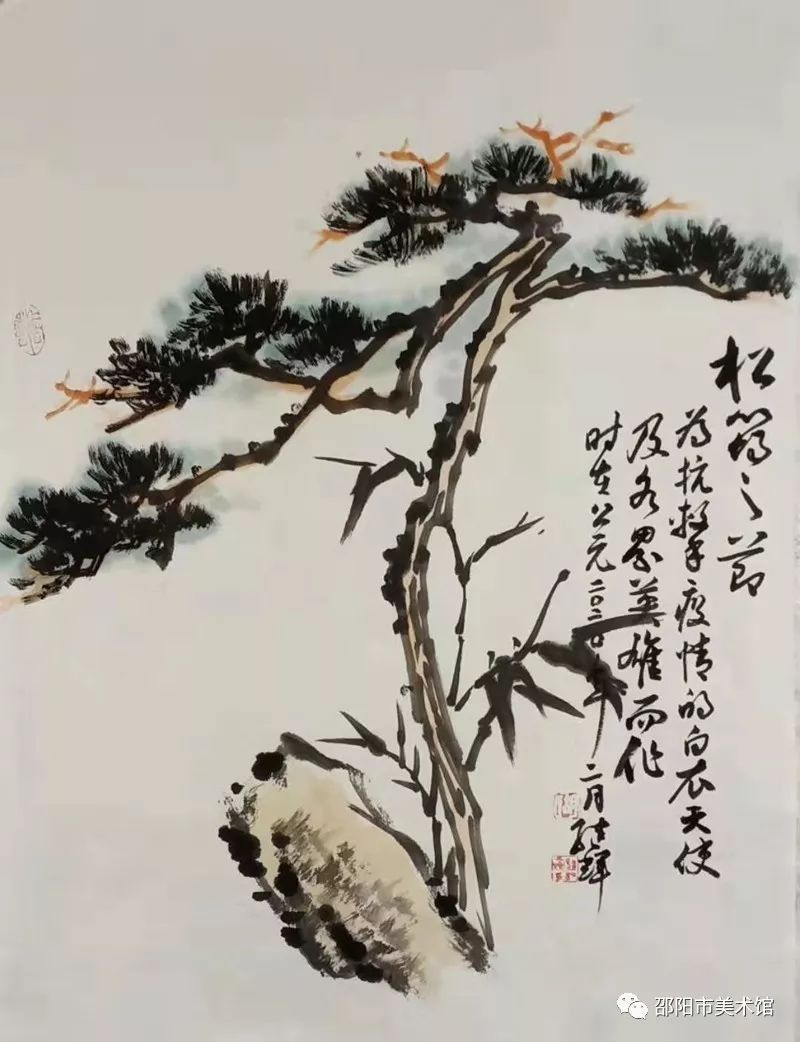 松筠之節
为抗擊疫情的白衣天使
及各界英雄而作
时在公元二〇二〇年二月
邵阳市美术馆